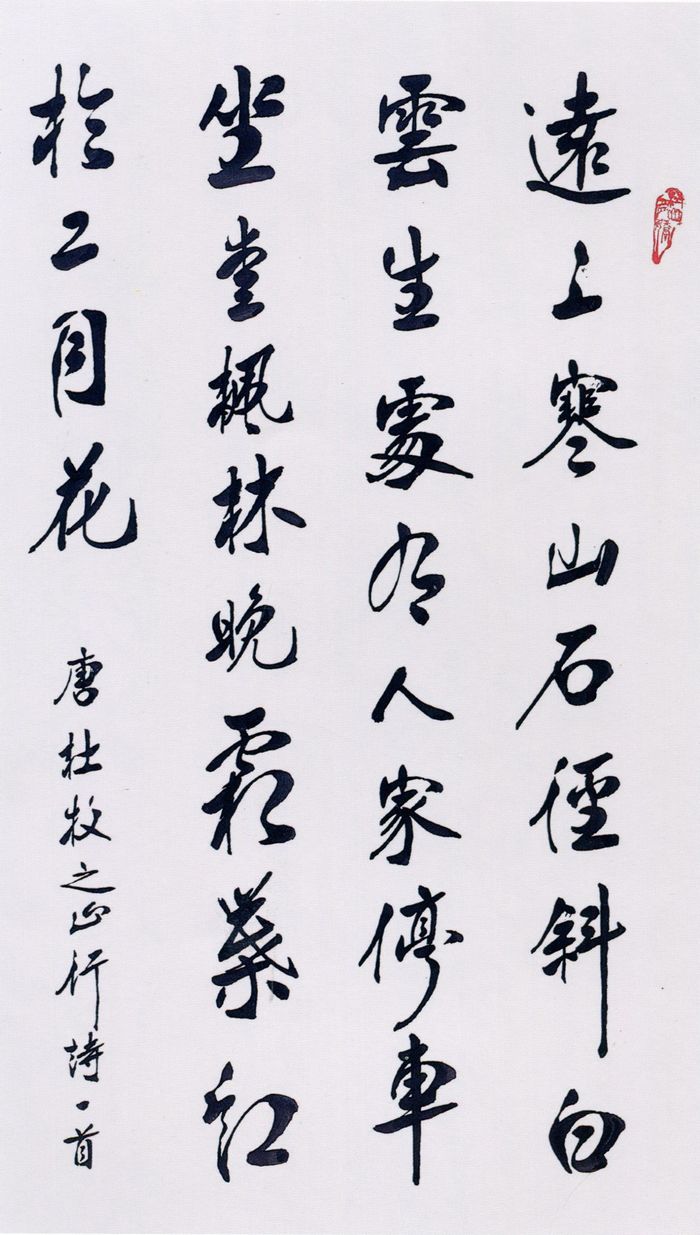 遠上寒山石徑斜白
雲生處有人家停車
坐愛楓林晚霜葉紅
於二月花
唐杜牧之山行詩一首